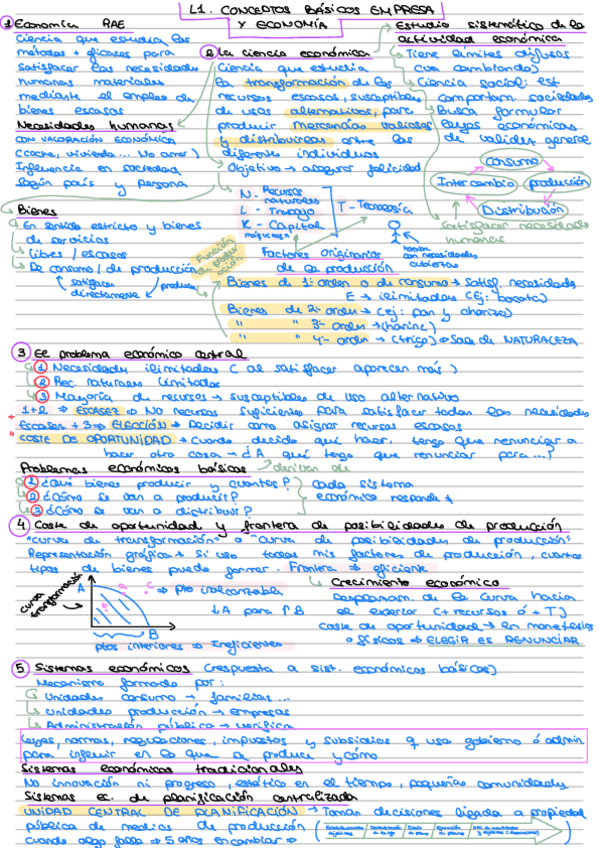 L1. CONCEPTOS BÁSICOS EMPRESA
Y ECONOMÍA
1 Economía RAE
Ciencia que estudia los
métodos + eficaces para
satisfacer las necesidades
humanas materiales
mediante el empleo de
bienes escasos
Necesidades humanas
CON VALORACIÓN ECONÓMICA
(coche, vivienda... No amor)
Influencia en sociedad
según país y persona
Bienes
En sentido estricto y bienes
de servicios
Libres / escasos
De consumo / de producción
satisfacer
directamente
producen
2 La ciencia económica
Ciencia que estudia
la transformación de los
recursos escasos, susceptibles
de usos alternativos, para
producir mercancías valiosas
y distribuirlas entre los
diferentes individuos
Objetivo → asegurar felicidad
N - Recursos
naturales
L - Trabajo
K - Capital
T - Tecnología
Función
de produ-
cción
Factores originarios
de la producción
Estudio sistemático de la
actividad económica
Tiene límites difusos
(va cambiando)
Ciencia social: est.
comportam. sociedades
Busca formular
leyes económicas
de validez general
consumo
Intercambio
producción
Distribución
satisfacer necesidades
humanas
con necesidades
cubiertas
Bienes de 1º orden o de consumo → satisf. necesidades
E → ilimitadas (ej: bocata)
Bienes de 2º orden → (ej: pan y chorizo)
" " 3º orden → (harina)
" " 4º orden → (trigo) → Sale de NATURALEZA
3 El problema económico central
1 Necesidades ilimitadas (al satisfacer aparecen más)
2 Rec. naturales limitados
3 Mayoría de recursos → susceptibles de uso alternativo
1+2 ⇒ ESCASEZ ⇒ No recursos suficientes para satisfacer todas las necesidades
Escasez + 3 ⇒ ELECCIÓN ⇒ Decidir como asignar recursos escasos
COSTE DE OPORTUNIDAD → cuando decido qué hacer, tengo que renunciar a
hacer otra cosa → ¿A qué tengo que renunciar para...?
Problemas económicos básicos → derivan de
1 ¿Qué bienes producir y cuantos?
2 ¿Cómo se van a producir?
3 ¿Cómo se van a distribuir?
Cada sistema
económico responde
4 Coste de oportunidad y frontera de posibilidades de producción
"curva de transformación" o "curva de posibilidades de producción"
Representación gráfica → Si uso todos mis factores de producción, cuantos
tipos de bienes puedo generar. Frontera ⇒ eficiente
curva
transformación
A
B
C
⇒ Pto inalcanzable
↓A para ↑B
ptos interiores ⇒ Ineficientes
Crecimiento económico
Desplazam. de la curva hacia
el exterior (+ recursos ó + T)
coste de oportunidad → En monetarios
o físicos ⇒ ELEGIR ES RENUNCIAR
5 Sistemas económicos (respuesta a sist. económicos básicos)
Mecanismo formado por:
Unidades consumo → familias...
Unidades producción → empresas
Administración pública → verifica
Leyes, normas, regulaciones, impuestos y subsidios q usa gobierno ó admin
para influir en lo que se produce y cómo
Sistemas económicos tradicionales
No innovación ni progreso, estático en el tiempo, pequeñas comunidades
Sistemas ec. de planificación centralizada
UNIDAD CENTRAL DE PLANIFICACIÓN → Toman decisiones ligada a propiedad
pública de medios de producción
cuando algo falla ⇒ 5 años en cambiar ⇒